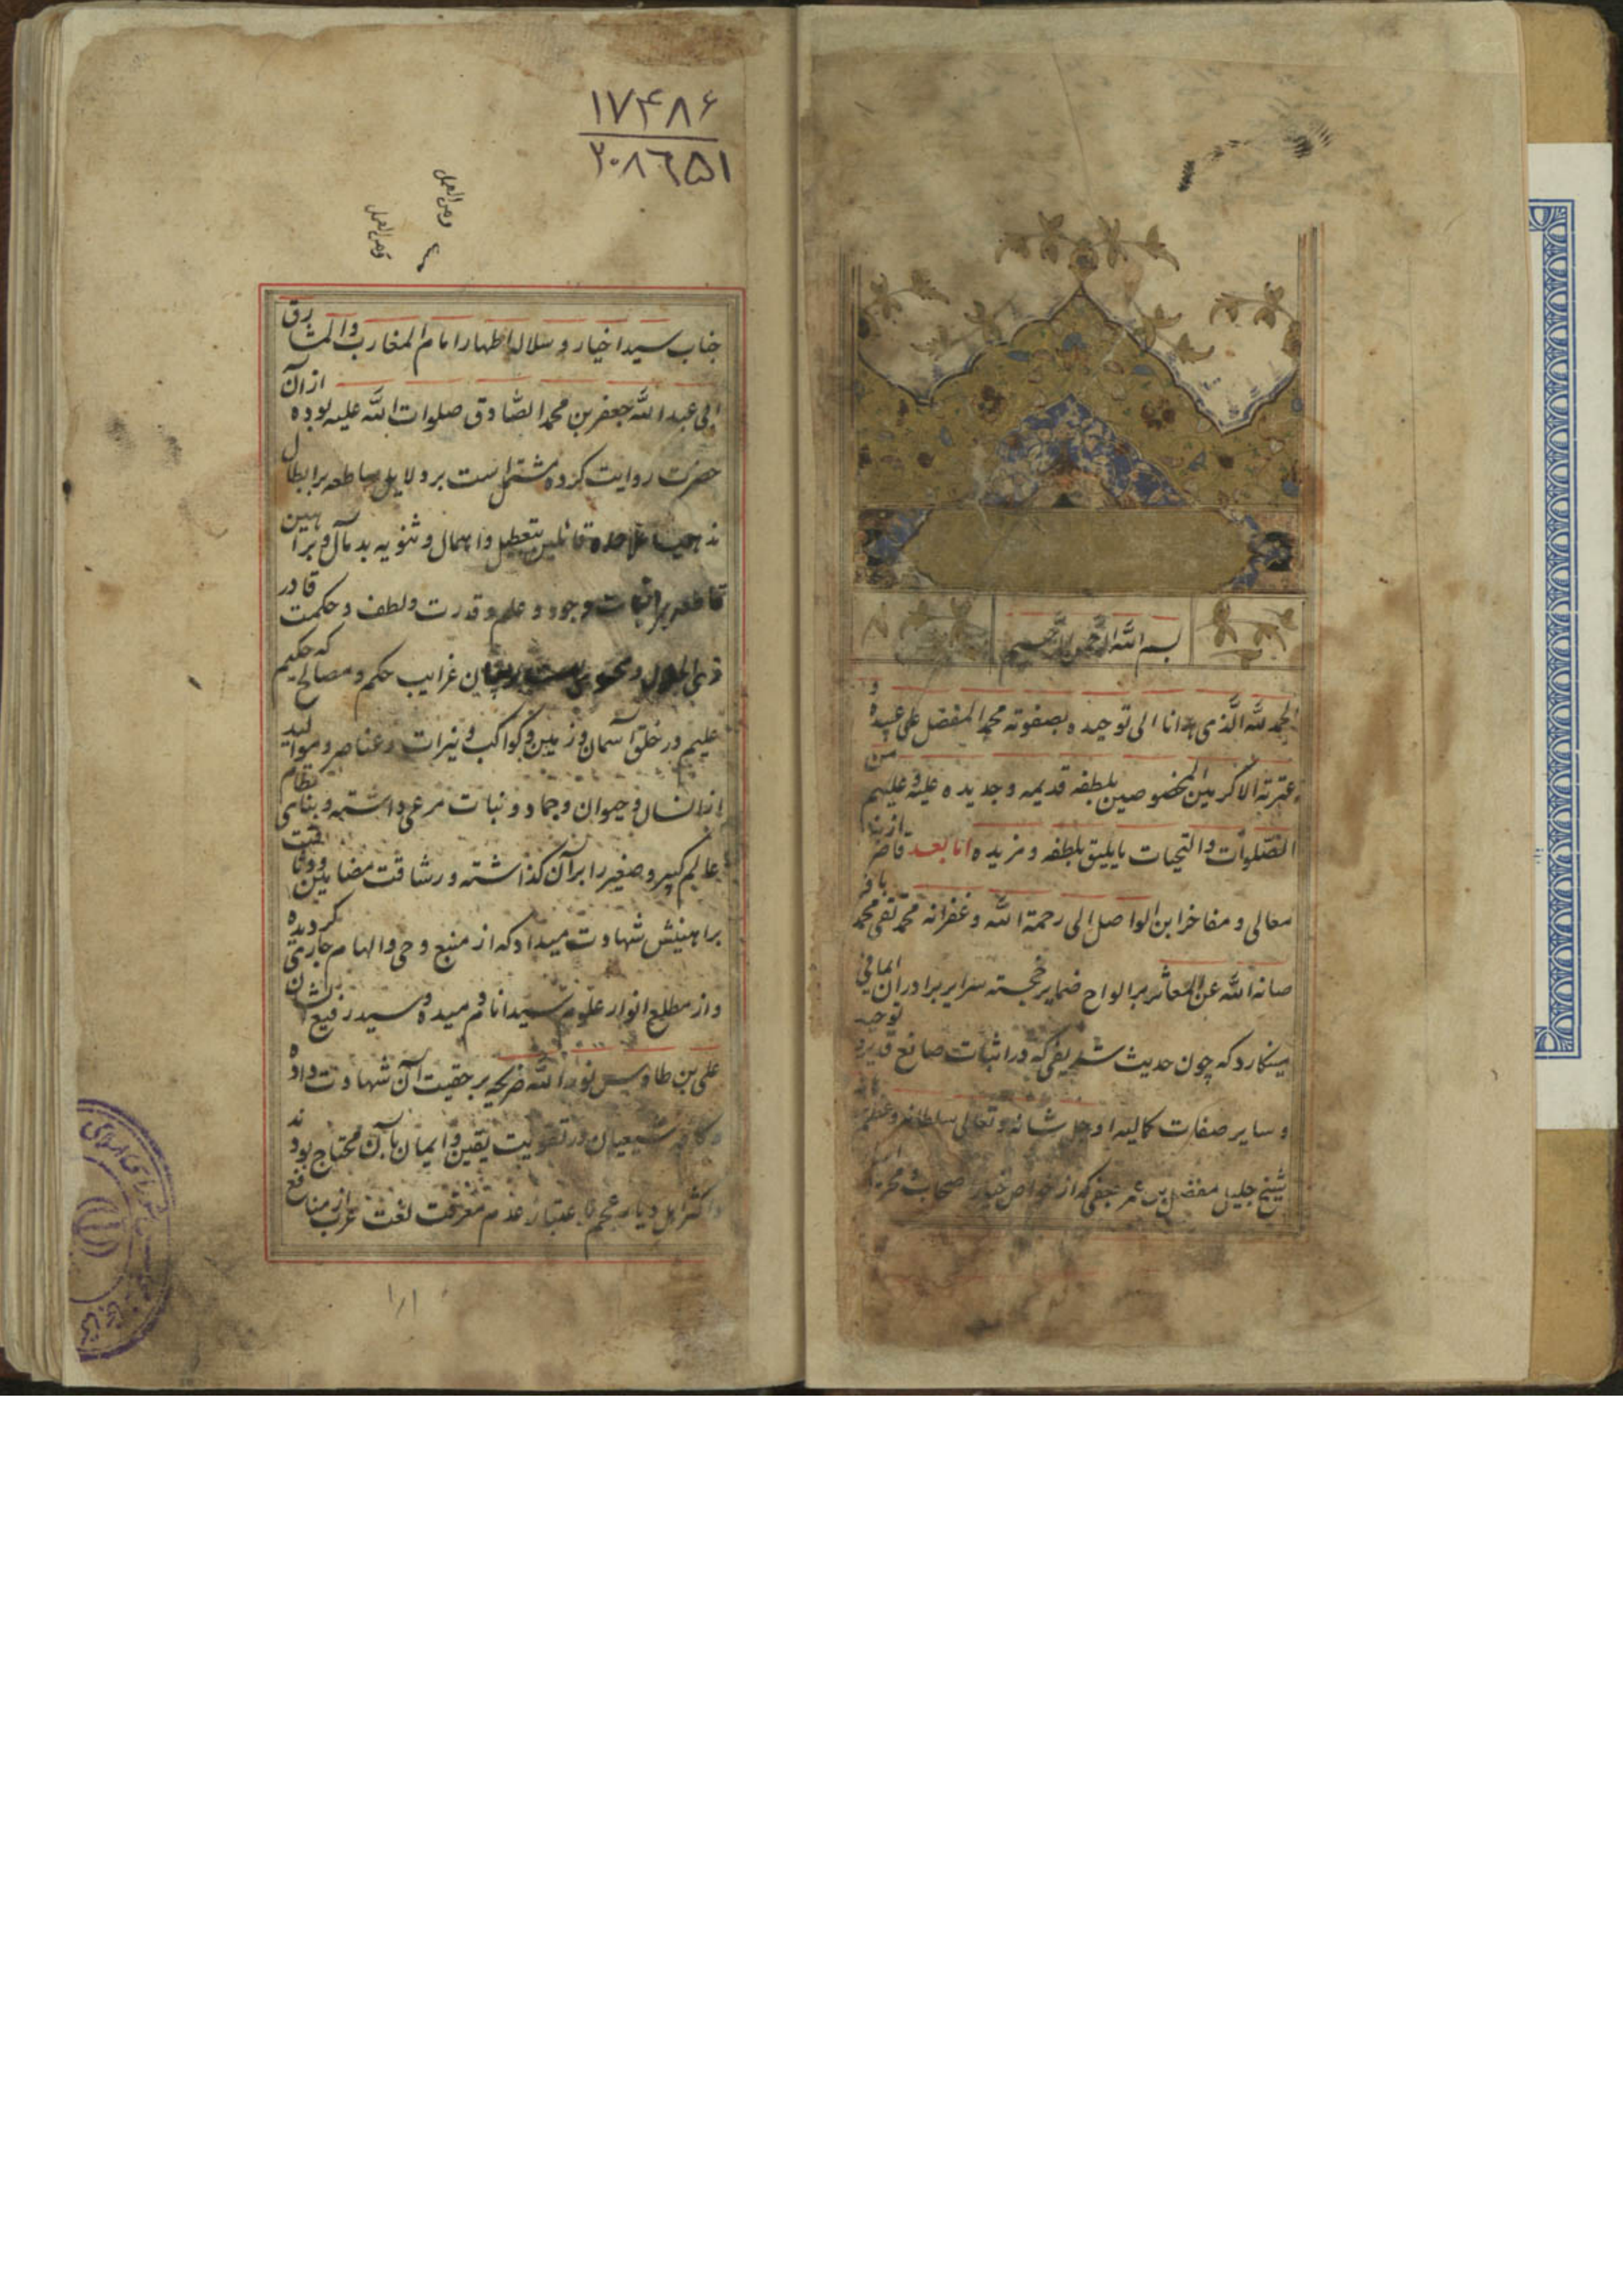 بسم الله الرحمن الرحیم
الحمد لله الذی هدانا الی توحیده بصفوته محمد المفضل علی عبیده و
عترته الاکرمین المخصوصین بلطفه قدیمه و جدیده علیه و علیهم من
الصلوات والتحیات ما یلیق بلطفه و مزیده اما بعد قاصر از نیل
معالی و مفاخر ابن الواصل الی رحمة الله و غفرانه محمد تقی محمد باقر
صانه الله عن المعاثر بر الواح ضمایر خجسته سرایر برادران ایمانی
مینکارد که چون حدیث شریفی که در اثبات صانع قدیر و توحید
و سایر صفات کمالیه او جل شانه و تعالی سلطانه و عظم
شیخ جلیل مفضل بن عمر جعفی که از خواص اصحاب
۱۷۴۸۶
۲۰۸۶۵۱
جناب سید اخیار و سلاله اطهار امام المغارب والمشارق
ابی عبد الله جعفر بن محمد الصادق صلوات الله علیه بوده از آن
حضرت روایت کرده مشتمل است بر دلایل ساطعه بر ابطال
مذهب ملاحده قائلین بتعطیل و اهمال و ثنویه بد مآل و براهین
قاطعه بر اثبات وجود و علم و قدرت و لطف و حکمت قادر
ذی الجلال و محتوی است بر بیان غرایب حکم و مصالح که حکیم
علیم در خلق آسمان و زمین و کواکب و نیرات و عناصر و موالید
از انسان و حیوان و جماد و نبات مرعی داشته و بنای نظام
عالم کبیر و صغیر را بر آن کذاشته و رشاقت مضامین و وثاقت
براهینش شهادت میداد که از منبع وحی و الهام جاری کردیده
و از مطلع انوار علوم سید انام دمیده و سید رفیع الشان
علی بن طاوس نور الله ضریحه بر حقیت آن شهادت داده
و کافه شیعیان در تقویت یقین و ایمان بآن محتاج بودند
و اکثر اهل دیار عجم باعتبار عدم معرفت لغت عرب از منافع